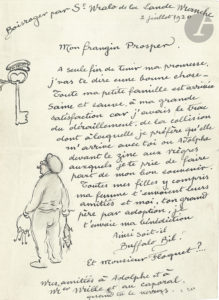 Boisroger par St Malo de la Lande Manche
2 juillet 1920
Mon frangin Prosper.
A seule fin de tenir ma promesse,
j'vas te dire une bonne chose –
Toute ma petite famille est arrivée
saine et sauve, à ma grande
satisfaction car j'avais le trac
du déraillement, de la collision
dont à laquelle je préfère qu'elle
m'arrive avec toi ou Adolphe
devant le zinc aux nègres
auxquels je te prie de faire
part de mon bon souvenir
Toutes mes filles y compris
ma femme t'envoient leurs
amitiés et moi, ton grand
père par adoption, je
t'envoie ma bénédiction
Ainsi soit-il
Buffalo Bil.
Et Monsieur Floquet ?..
Mes amitiés à Adolphe et à
Mr et Mme et au caporal,
quand tu le verras